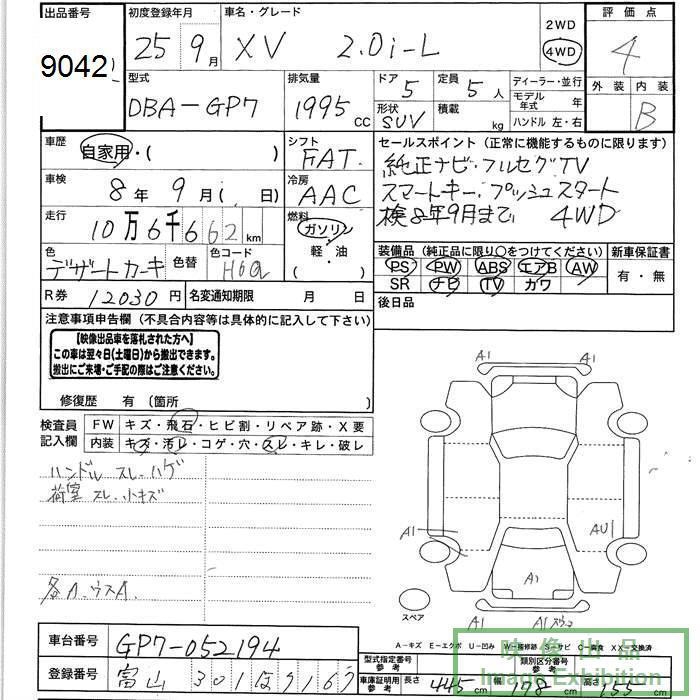 出品番号 初度登録年月 車名・グレード 2WD 評価点
9042 25 9月 XV 2.0i-L 4WD 4
型式 排気量 ドア 定員 ディーラー・並行 外装 内装
DBA-GP7 1995cc 5 5人 モデル年式 年 B
形状 SUV 積載 kg ハンドル 左・右
車歴 自家用・( ) シフト FAT セールスポイント(正常に機能するものに限ります)
純正ナビ・フルセグTV
車検 8年 9月 日) 冷房 AAC スマートキー・プッシュスタート
検8年9月まで 4WD
走行 10万6千662km 燃料 ガソリン・軽・油 ( )
装備品(純正品に限り○をつけてください) 新車保証書
色 デザートカーキ 色替 色コード H6Q PS PW ABS エアB AW 有・無
SR ナビ TV カワ
R券 12030円 名変通知期限 月 日 後日品
注意事項申告欄(不具合内容等は具体的に記入して下さい)
【映像出品車を落札された方へ】
この車は翌々日(土曜日)から搬出できます。
搬出にご来場・ご手配の際はご注意ください。
修復歴 有(箇所 )
検査員記入欄 FW キズ・飛石・ヒビ割・リペア跡・X要
内装 キズ・汚レ・コゲ・穴・スレ・キレ・破レ
ハンドル スレ・ハゲ
荷室 スレ・小キズ
A1 A1
A1 AU1
A1
スペア
A1 A1
A-キズ E-エクボ U-凹み W-補修跡 S-サビ C-腐食 XX-交換済
車台番号 GP7-052194
型式指定番号 参考 類別区分番号 参考
登録番号 富山 301
車庫証明用 参考 長さ 445cm 幅 178cm 高さ 155cm
映像出品
Image Exhibition